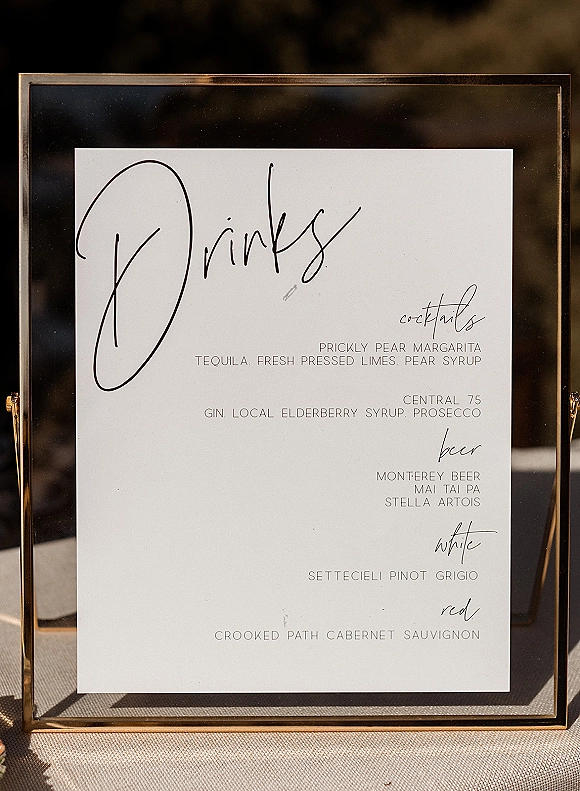 Drinks
cocktails
PRICKLY PEAR MARGARITA
TEQUILA, FRESH PRESSED LIMES, PEAR SYRUP
CENTRAL 75
GIN, LOCAL ELDERBERRY SYRUP, PROSECCO
beer
MONTEREY BEER
MAI TAI PA
STELLA ARTOIS
white
SETTECIELI PINOT GRIGIO
red
CROOKED PATH CABERNET SAUVIGNON